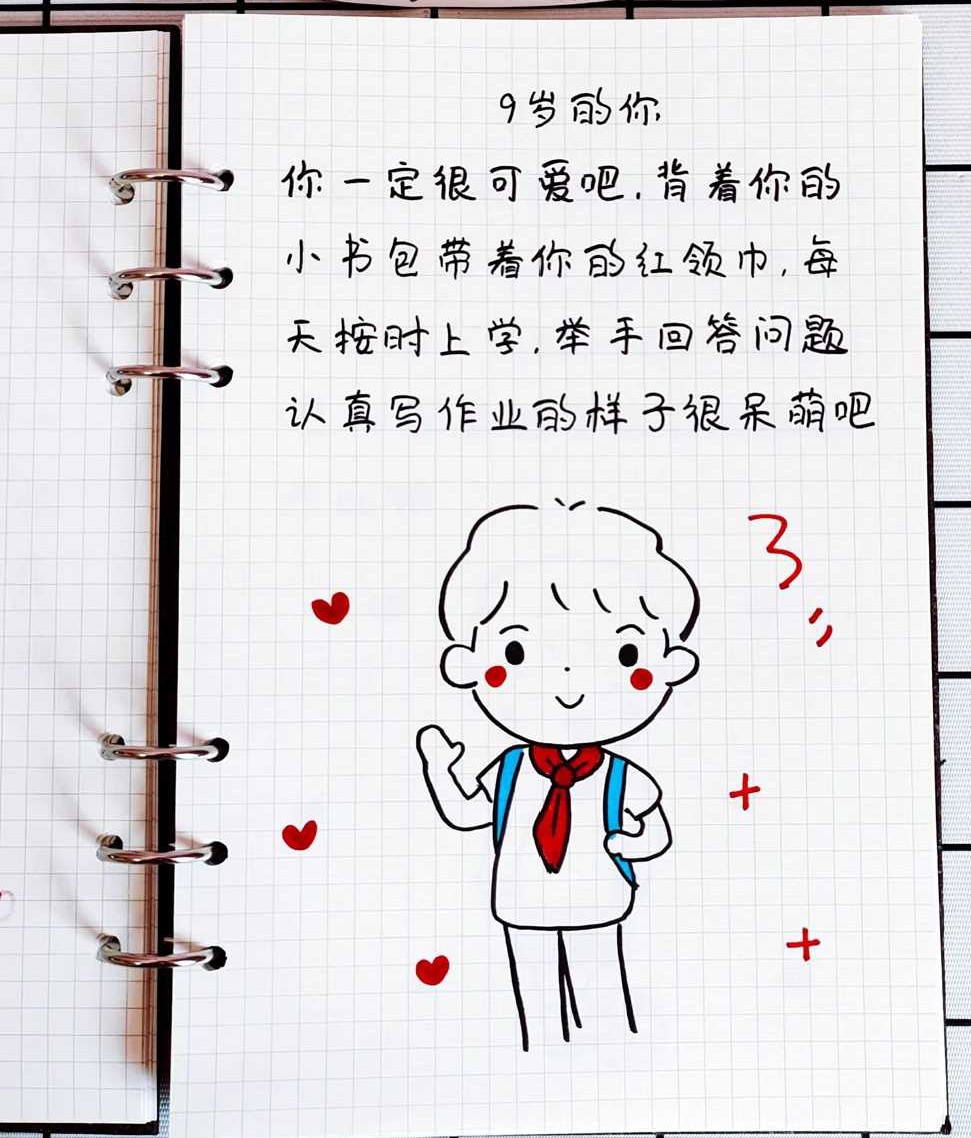 9岁的你
你一定很可爱吧,背着你的
小书包带着你的红领巾,每
天按时上学,举手回答问题
认真写作业的样子很呆萌吧
3